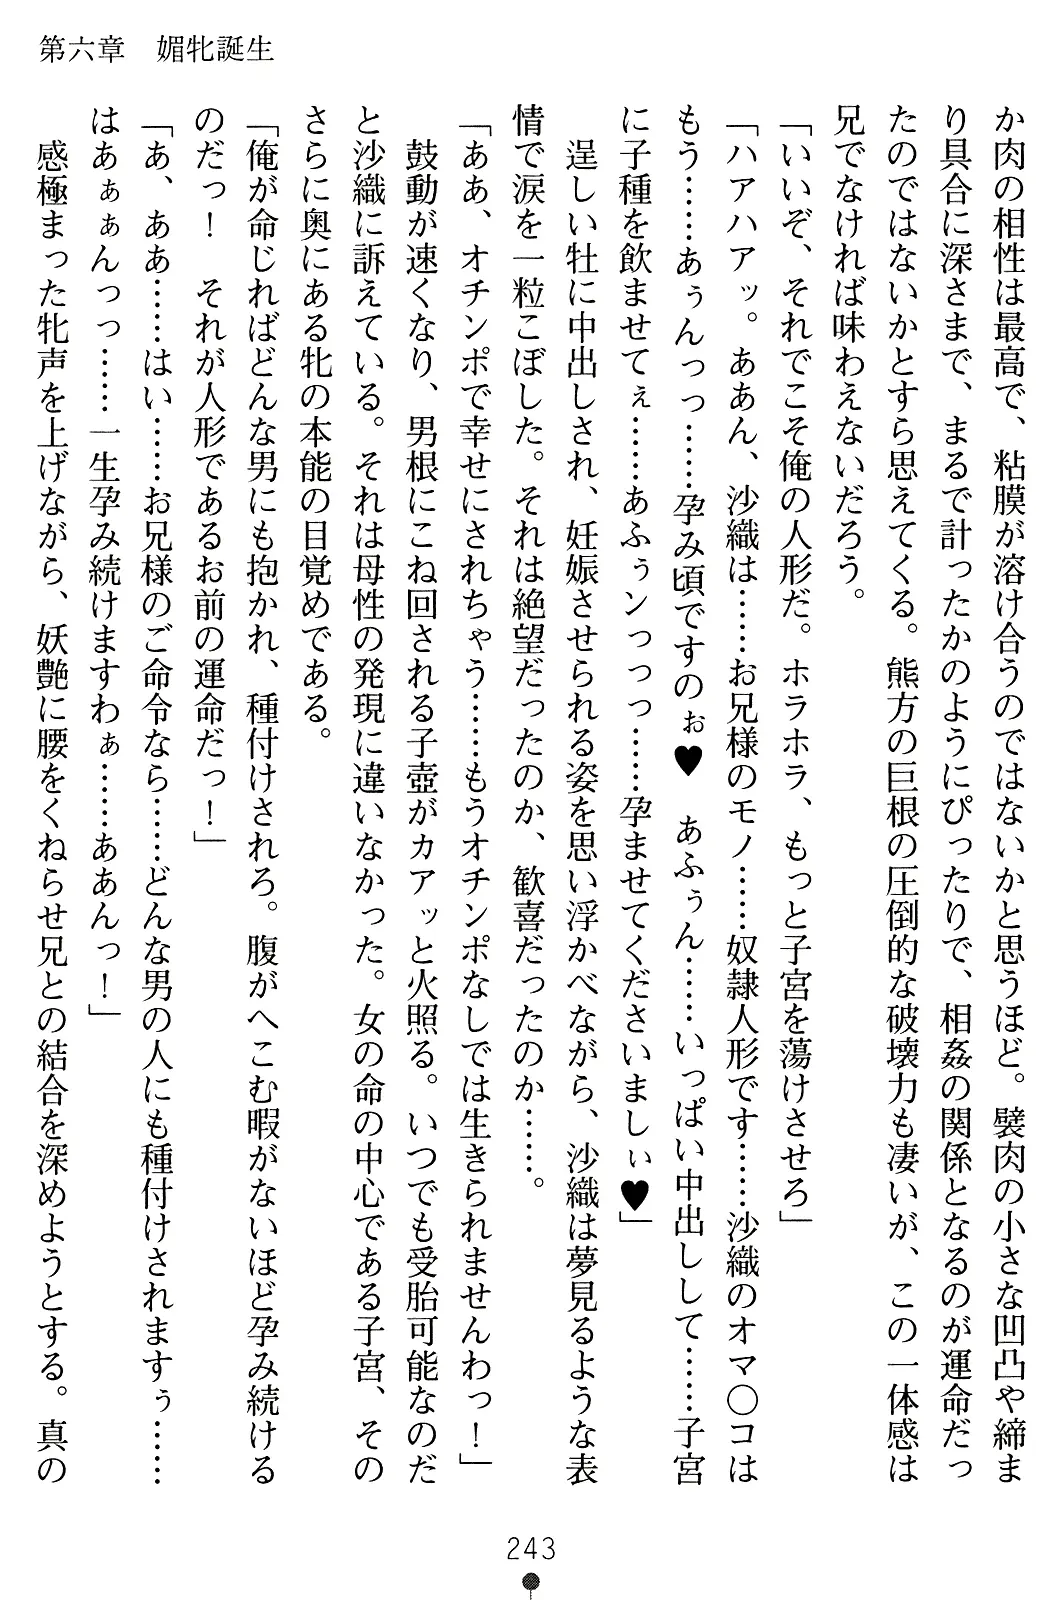 第六章　媚牝誕生
か肉の相性は最高で、粘膜が溶け合うのではないかと思うほど。襞肉の小さな凹凸や締ま
り具合に深さまで、まるで計ったかのようにぴったりで、相姦の関係となるのが運命だっ
たのではないかとすら思えてくる。熊方の巨根の圧倒的な破壊力も凄いが、この一体感は
兄でなければ味わえないだろう。
「いいぞ、それでこそ俺の人形だ。ホラホラ、もっと子宮を蕩けさせろ」
「ハアハアッ。ああん、沙織は……お兄様のモノ……奴隷人形です……沙織のオマ〇コは
もう……あぅんっっ……孕み頃ですのぉ♥　あふぅん……いっぱい中出しして……子宮
に子種を飲ませてぇ……あふぅンっっっ……孕ませてくださいましぃ♥」
逞しい牡に中出しされ、妊娠させられる姿を思い浮かべながら、沙織は夢見るような表
情で涙を一粒こぼした。それは絶望だったのか、歓喜だったのか……。
「ああ、オチンポで幸せにされちゃう……もうオチンポなしでは生きられませんわっ！」
鼓動が速くなり、男根にこね回される子壺がカアッと火照る。いつでも受胎可能なのだ
と沙織に訴えている。それは母性の発現に違いなかった。女の命の中心である子宮、その
さらに奥にある牝の本能の目覚めである。
「俺が命じればどんな男にも抱かれ、種付けされろ。腹がへこむ暇がないほど孕み続ける
のだっ！　それが人形であるお前の運命だっ！」
「あ、ああ……はい……お兄様のご命令なら……どんな男の人にも種付けされますぅ……
はあぁぁんっっ……一生孕み続けますわぁ……ああんっ！」
感極まった牝声を上げながら、妖艶に腰をくねらせ兄との結合を深めようとする。真の
243